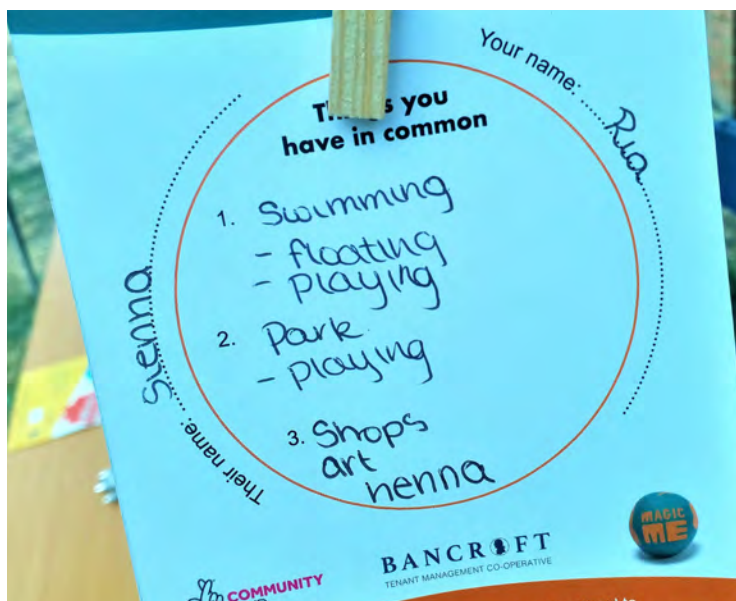 Your name: Ria
Things you
have in common
1. Swimming
- floating
- playing
2. Park
- playing
3. Shops
art
henna
Their name: Sienna
COMMUNITY
BANCROFT
TENANT MANAGEMENT CO-OPERATIVE
MAGIC
ME